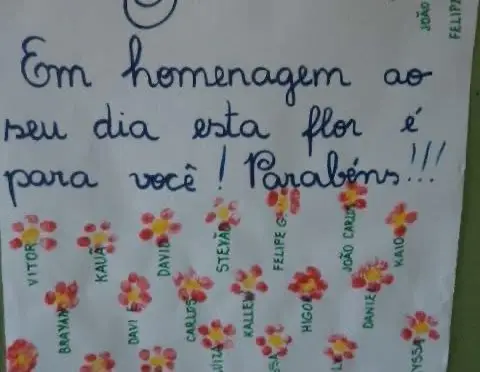 JOÃO
FELIP
Em homenagem ao
seu dia esta flor é
para você! Parabéns!!!
VITOR
KAUÃ
DAVID
STEVÃO
FELIPE G.
JOÃO CARLOS
KAIO
BRAYAN
DAVI
CARLOS
KALLEB
HIGOR
DANIEL
UIZA
YSSA